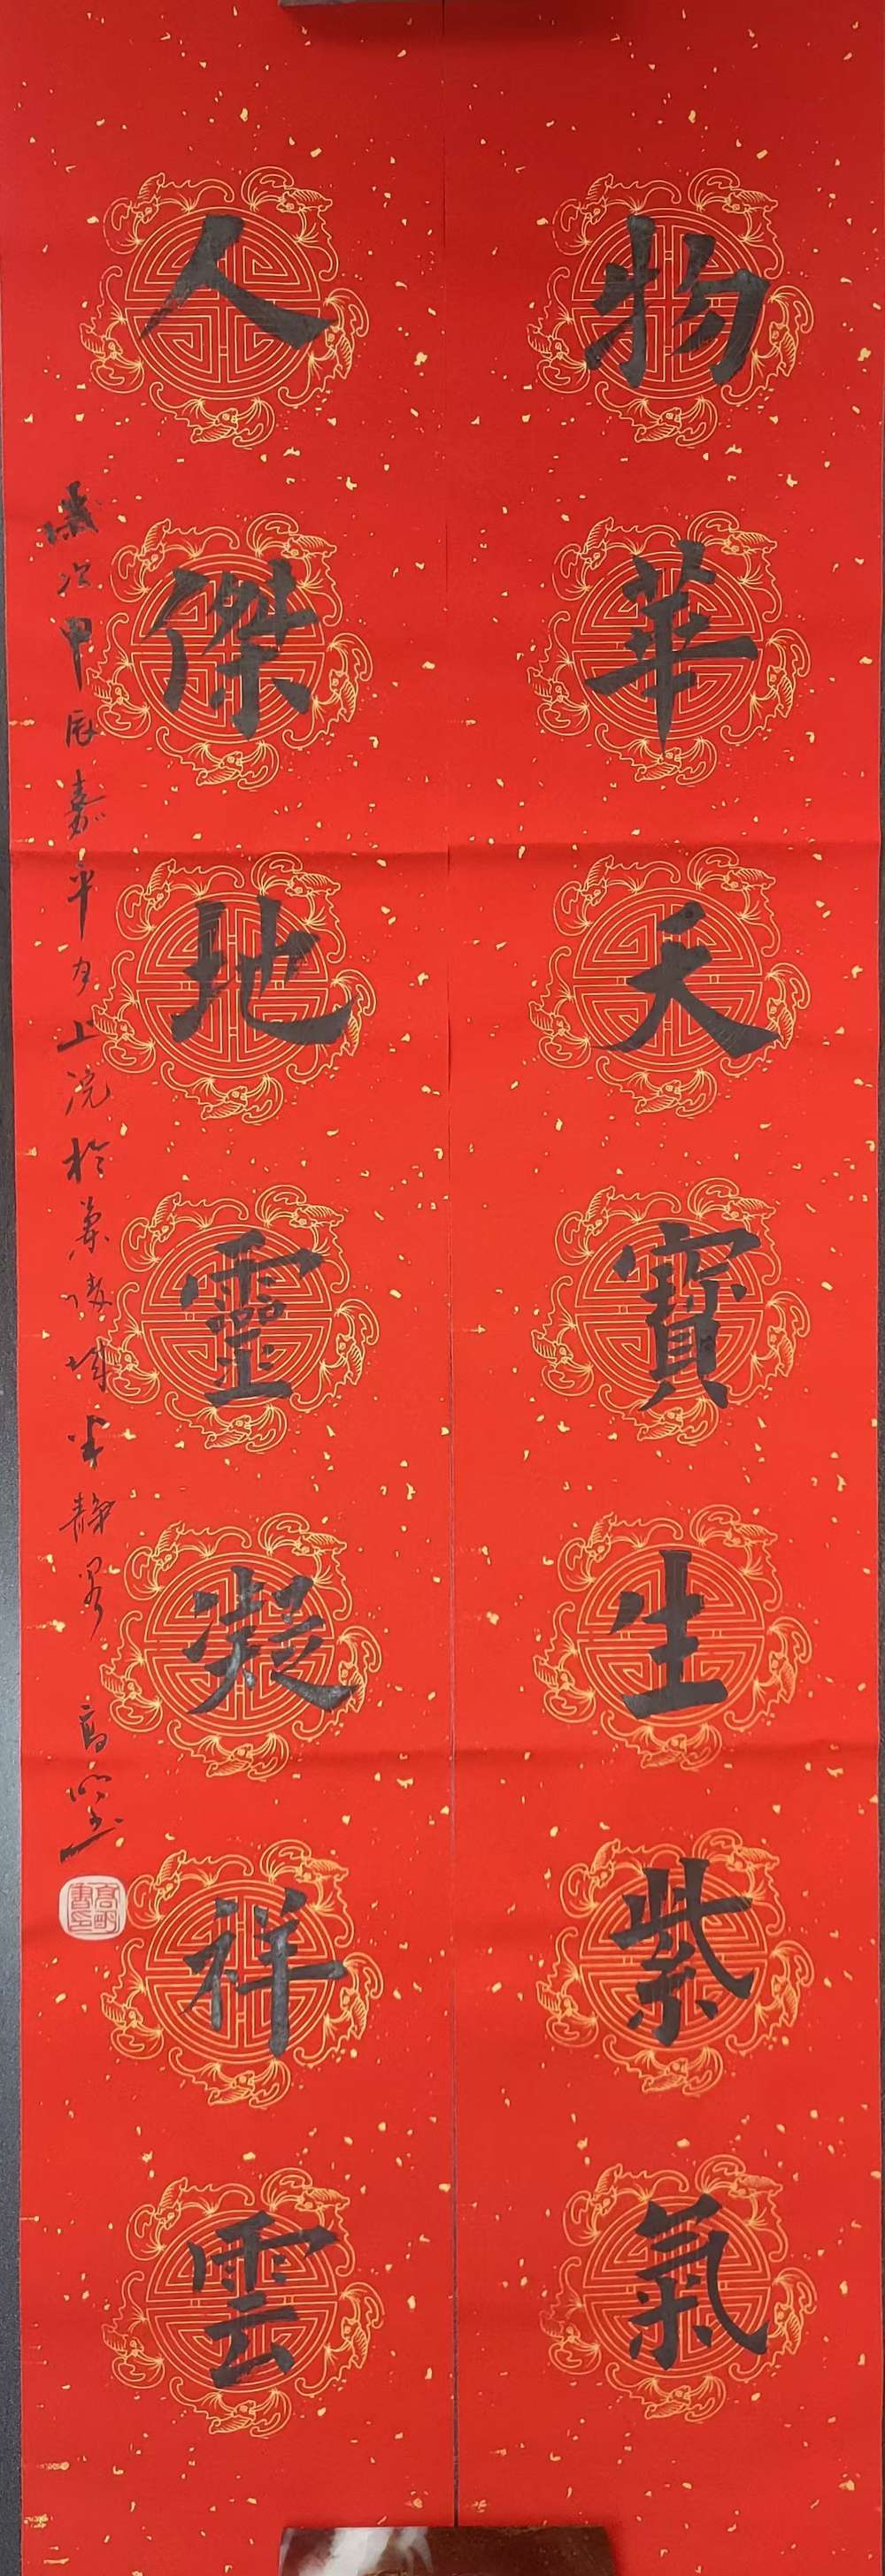 物華天寶生紫氣
人傑地靈凝祥雲
歲次甲辰嘉平月上浣於蘭陵城半靜畧 高明